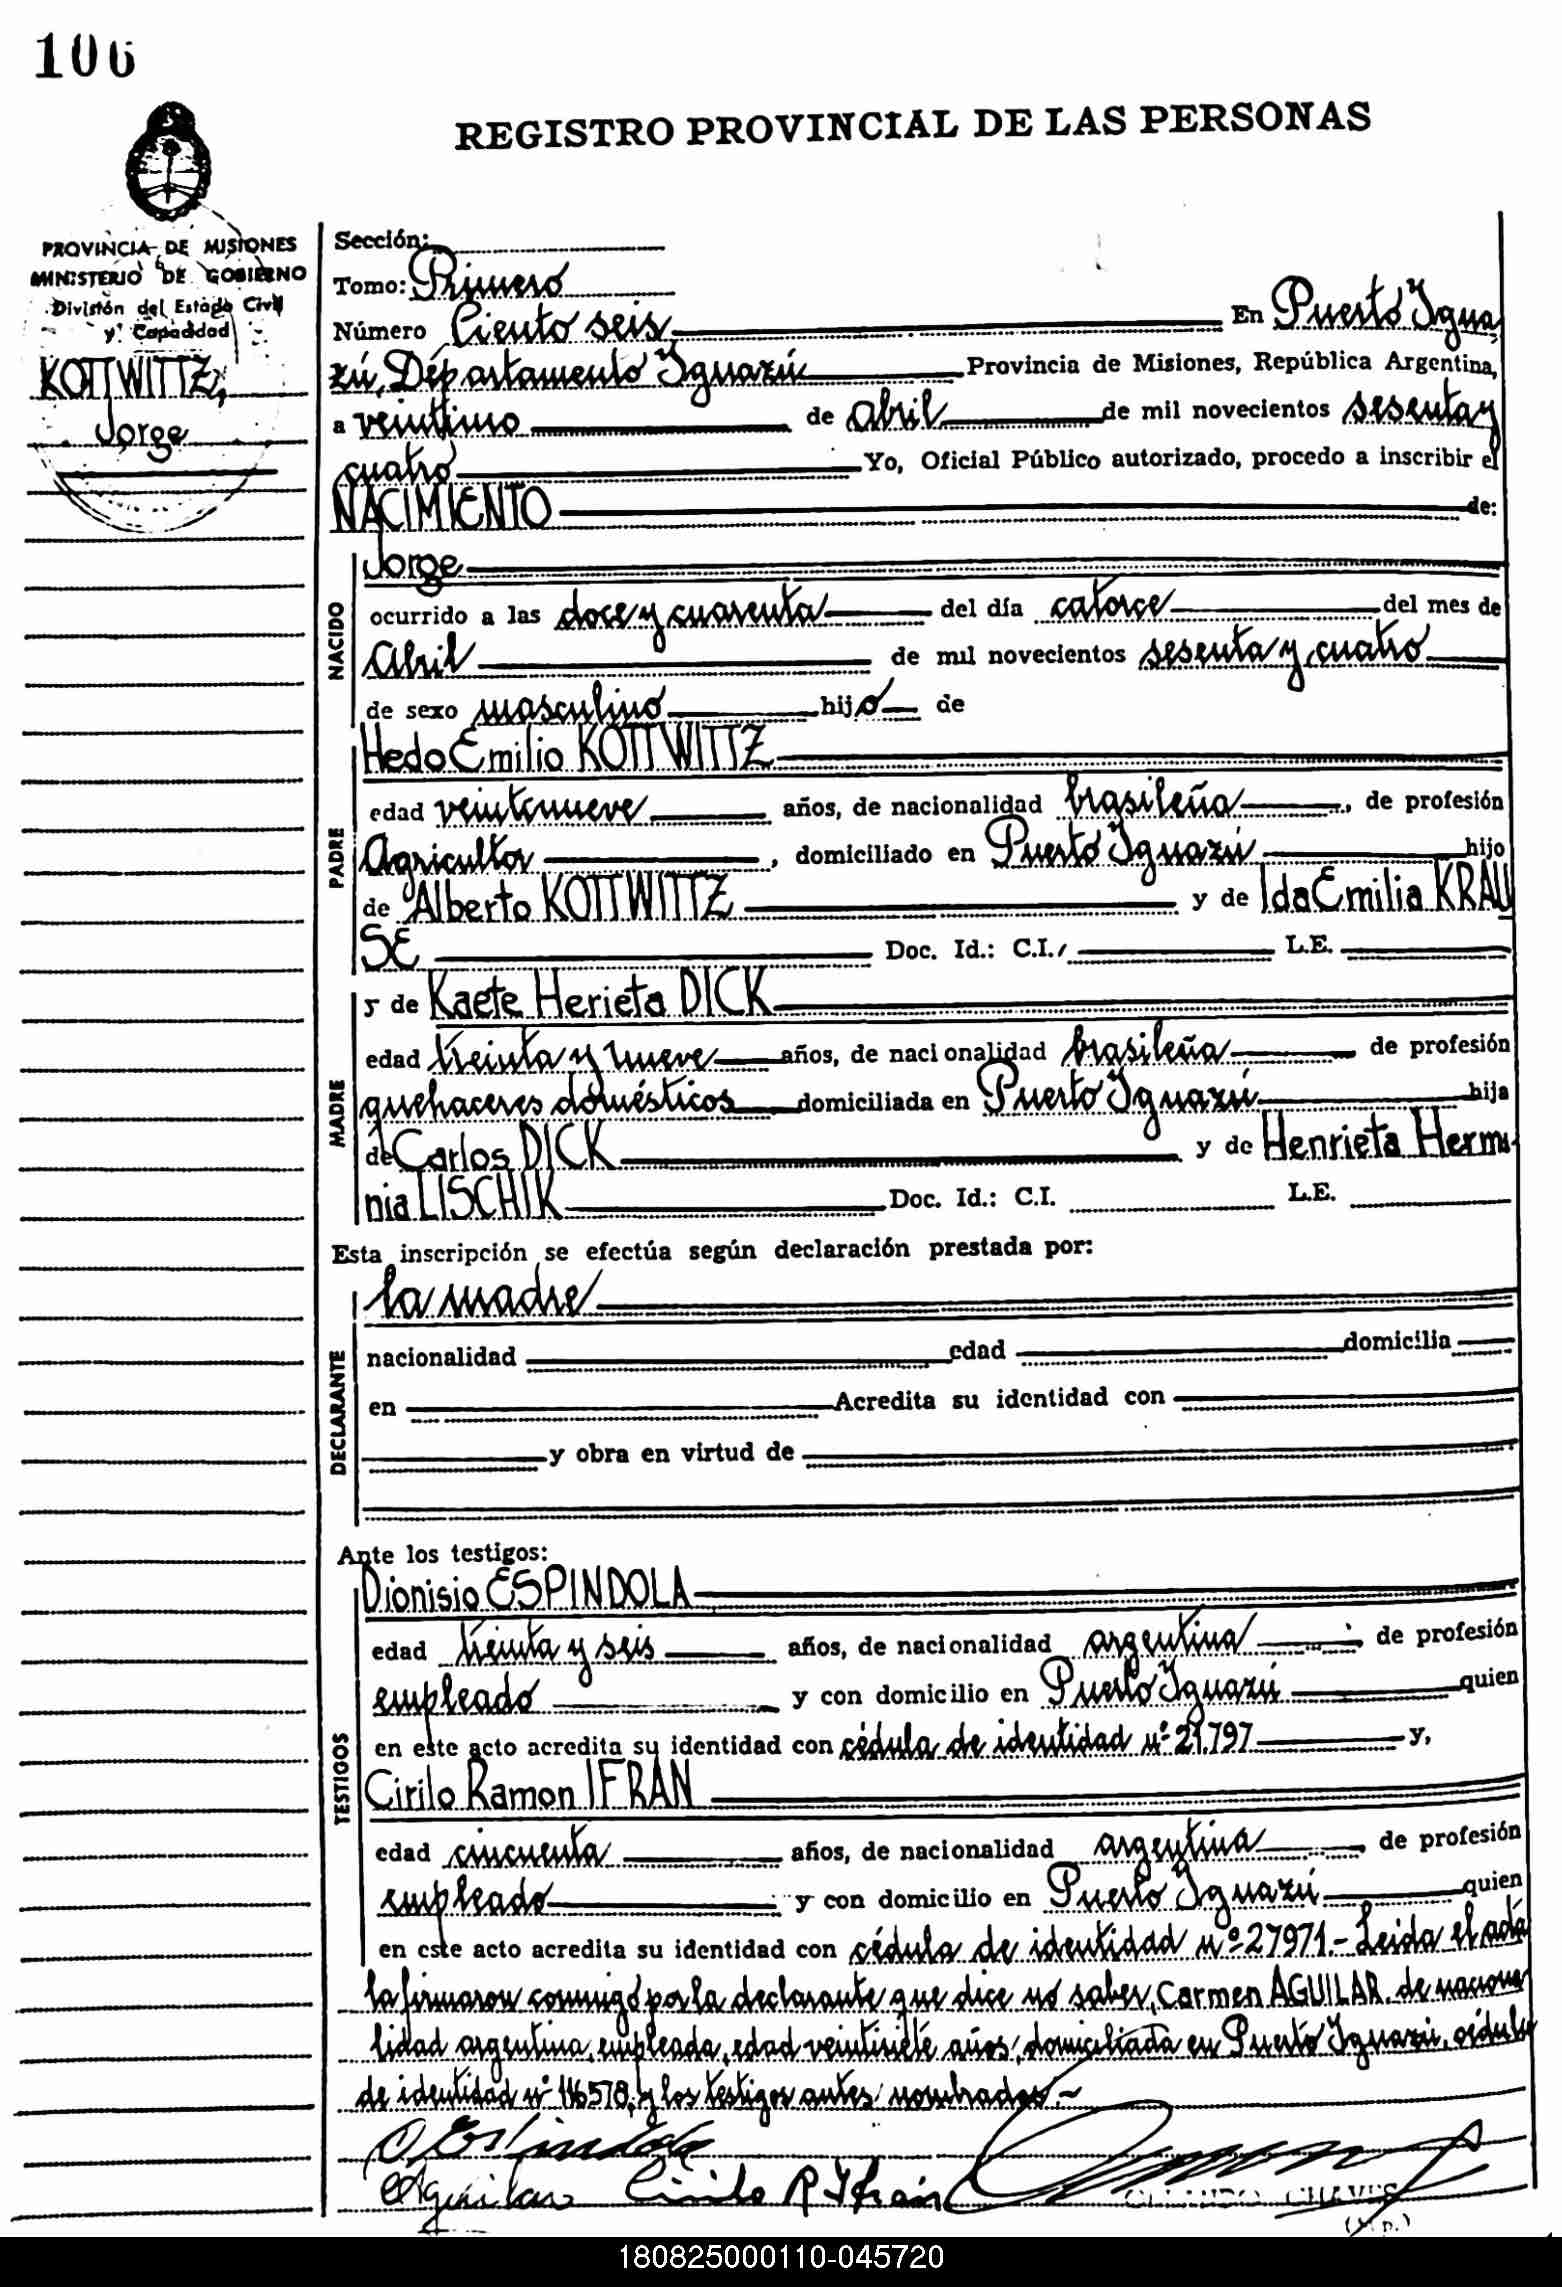 106
REGISTRO PROVINCIAL DE LAS PERSONAS
PROVINCIA DE MISIONES
MINISTERIO DE GOBIERNO
División del Estado Civil
y Capacidad
KOTTWITTZ,
Jorge
Sección:
Tomo: Primero
Número Ciento seis En Puerto Igua
zú, Departamento Iguazú Provincia de Misiones, República Argentina,
a veintiuno de abril de mil novecientos sesenta y
cuatro Yo, Oficial Público autorizado, procedo a inscribir el
NACIMIENTO de:
NACIDO
Jorge
ocurrido a las doce y cuarenta del día catorce del mes de
Abril de mil novecientos sesenta y cuatro
de sexo masculino hijo de
PADRE
Hedo Emilio KOTTWITTZ
edad veintinueve años, de nacionalidad brasileña, de profesión
Agricultor, domiciliado en Puerto Iguazú hijo
de Alberto KOTTWITTZ y de Ida Emilia KRAU
SE Doc. Id.: C.I. L.E.
MADRE
y de Kaete Herieta DICK
edad treinta y nueve años, de nacionalidad brasileña de profesión
quehaceres domésticos domiciliada en Puerto Iguazú hija
de Carlos DICK y de Henrieta Hermi
nia LISCHIK Doc. Id.: C.I. L.E.
Esta inscripción se efectúa según declaración prestada por:
DECLARANTE
la madre
nacionalidad edad domicilia
en Acredita su identidad con
y obra en virtud de
Ante los testigos:
TESTIGOS
Dionisio ESPINDOLA
edad treinta y seis años, de nacionalidad argentina, de profesión
empleado y con domicilio en Puerto Iguazú quien
en este acto acredita su identidad con cédula de identidad nº 21.797 y,
Cirilo Ramon IFRAN
edad cincuenta años, de nacionalidad argentina, de profesión
empleado y con domicilio en Puerto Iguazú quien
en este acto acredita su identidad con cédula de identidad nº 27971.- Leida el acta
la firmaron conmigo por la declarante que dice no saber, Carmen AGUILAR, de naciona
lidad argentina, empleada, edad veintisiete años, domiciliada en Puerto Iguazú, cédula
de identidad nº 116578, y los testigos antes nombrados.-
D. Espindola
C Aguilar Cirilo R Ifrán
CHAVES
180825000110-045720